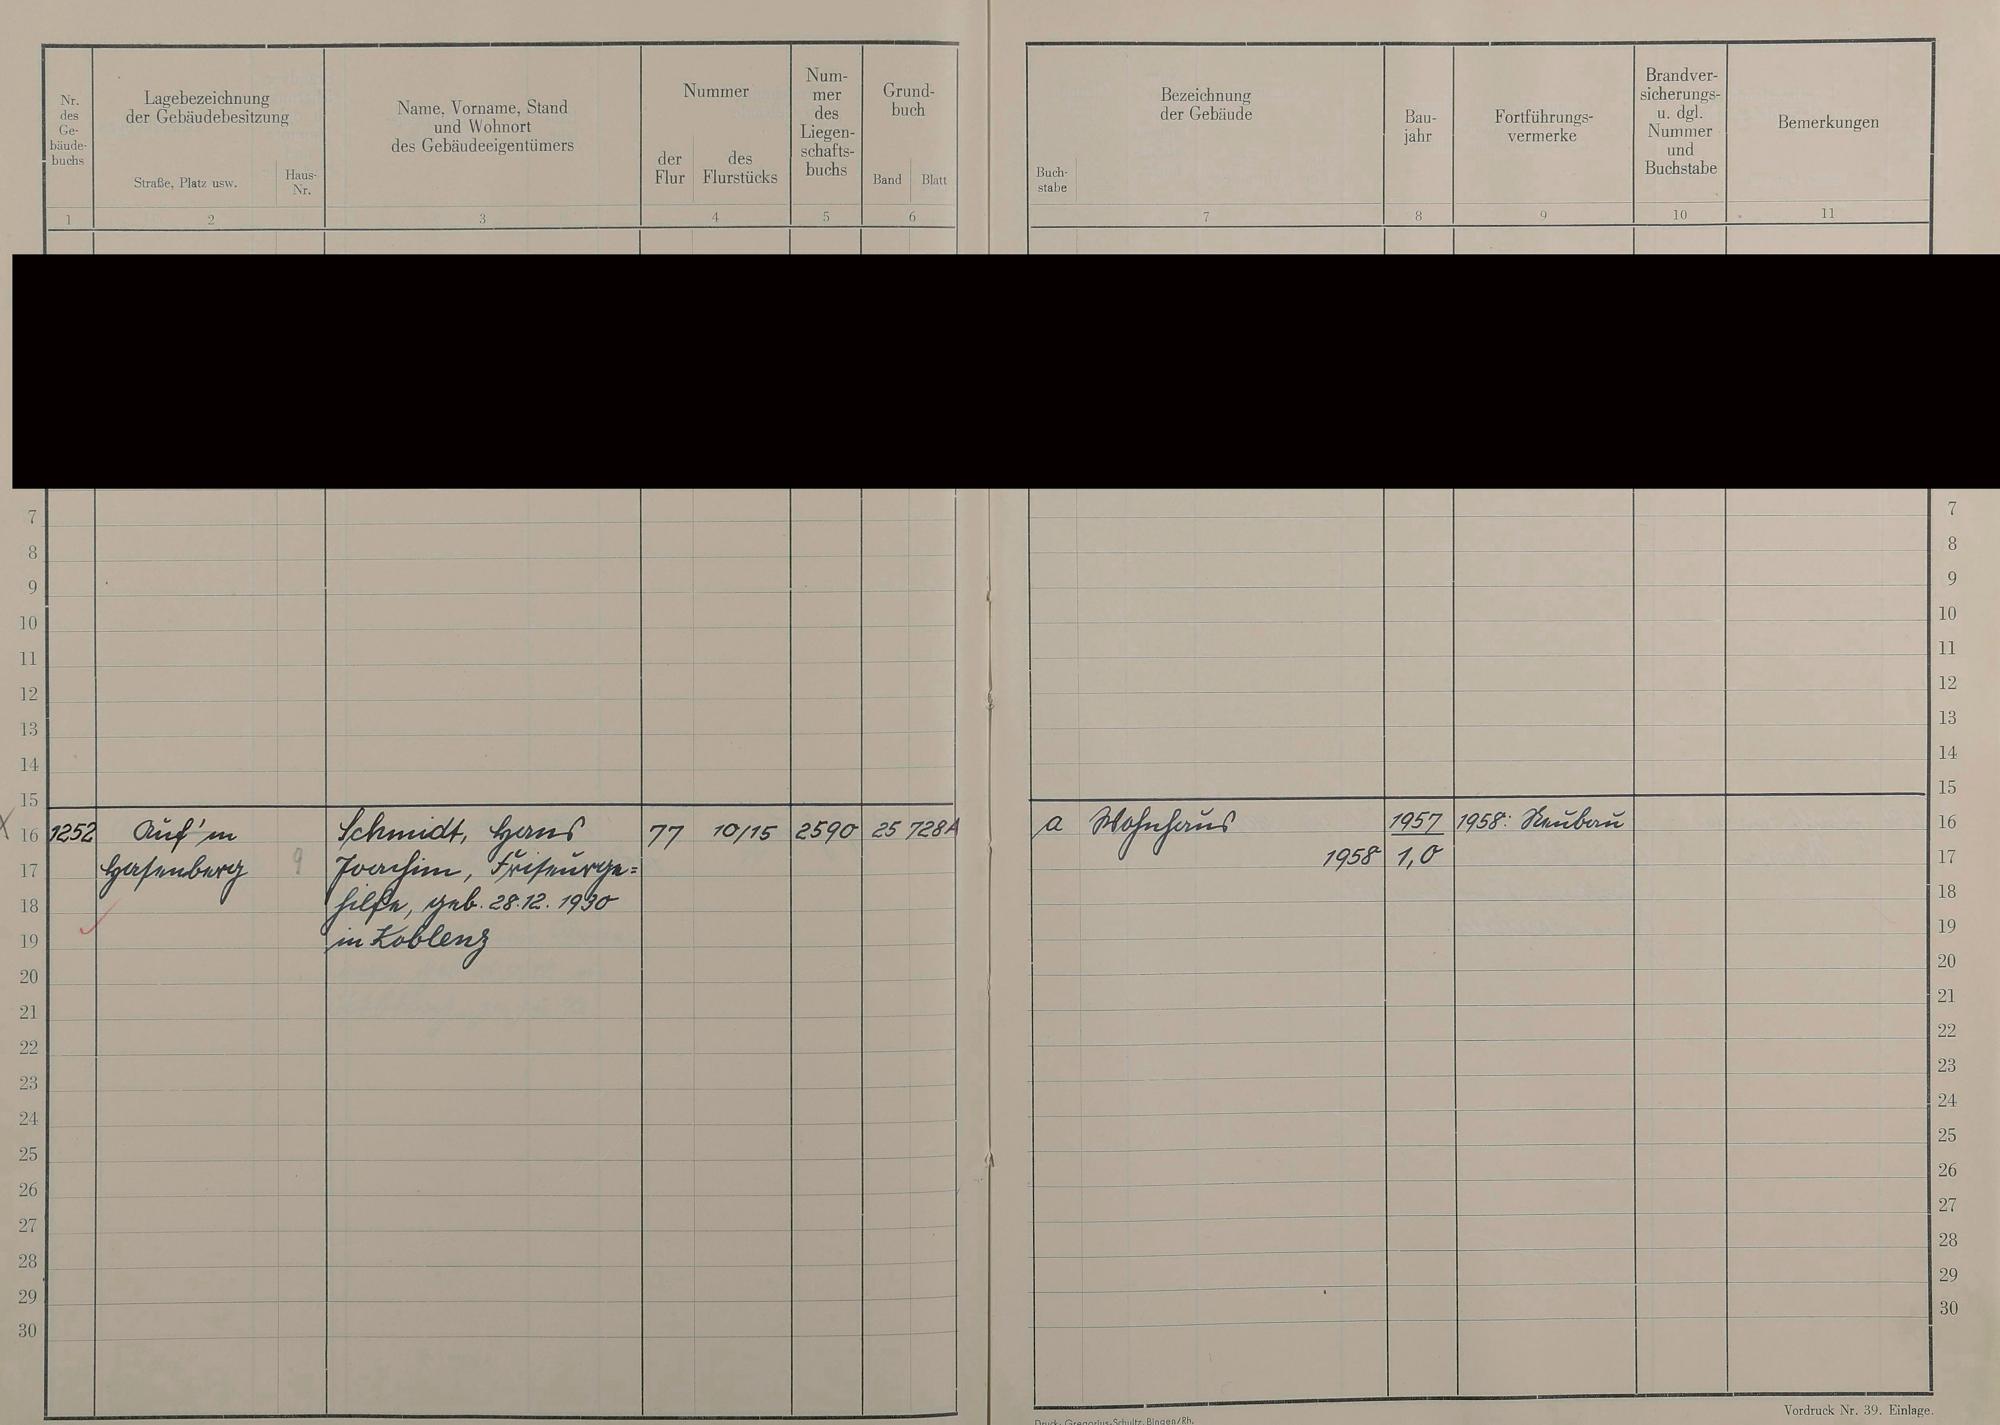 Nr.
des
Ge-
bäude-
buchs
Lagebezeichnung
der Gebäudebesitzung
Straße, Platz usw.
Haus-
Nr.
Name, Vorname, Stand
und Wohnort
des Gebäudeeigentümers
Nummer
der
Flur
des
Flurstücks
Num-
mer
des
Liegen-
schafts-
buchs
Grund-
buch
Band
Blatt
1 2 3 4 5 6
Bezeichnung
der Gebäude
Buch-
stabe
Bau-
jahr
Fortführungs-
vermerke
Brandver-
sicherungs-
u. dgl.
Nummer
und
Buchstabe
Bemerkungen
7 8 9 10 11
7 7
8 8
9 9
10 10
11 11
12 12
13 13
14 14
15 15
16 1252 Auf'm Schmidt, Hans 77 10/15 2590 25 728A a Wohnhaus 1957 1958: Neubau 16
17 Hasenberg 9 Joachim, Friseurge= 1958 1,0 17
18 hilfe, geb. 28.12. 1930 18
19 in Koblenz 19
20 20
21 21
22 22
23 23
24 24
25 25
26 26
27 27
28 28
29 29
30 30
Druck: Gregorius-Schultz, Bingen/Rh.
Vordruck Nr. 39. Einlage.